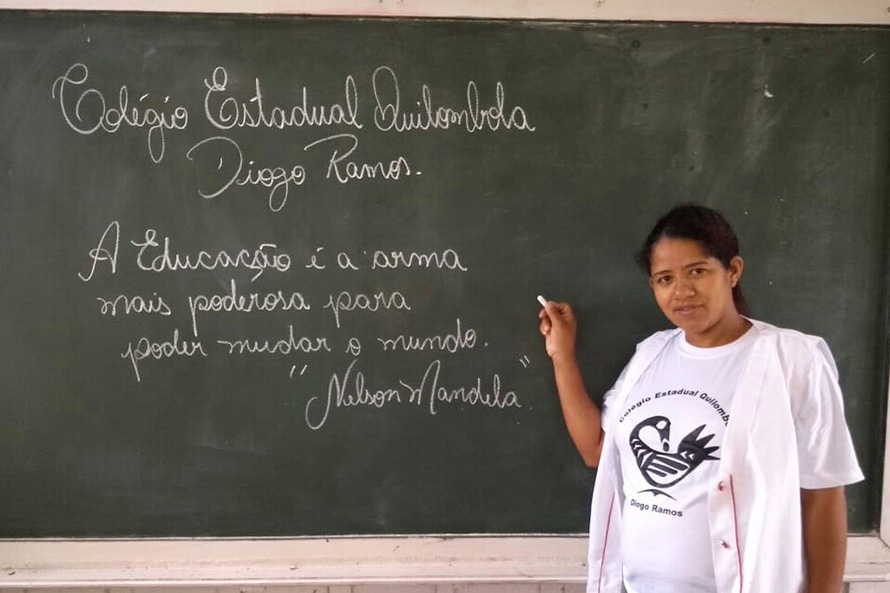 Colégio Estadual Quilombola
Diogo Ramos.
A Educação é a arma
mais poderosa para
poder mudar o mundo.
"Nelson Mandela"
Colégio Estadual Quilombo
Diogo Ramos